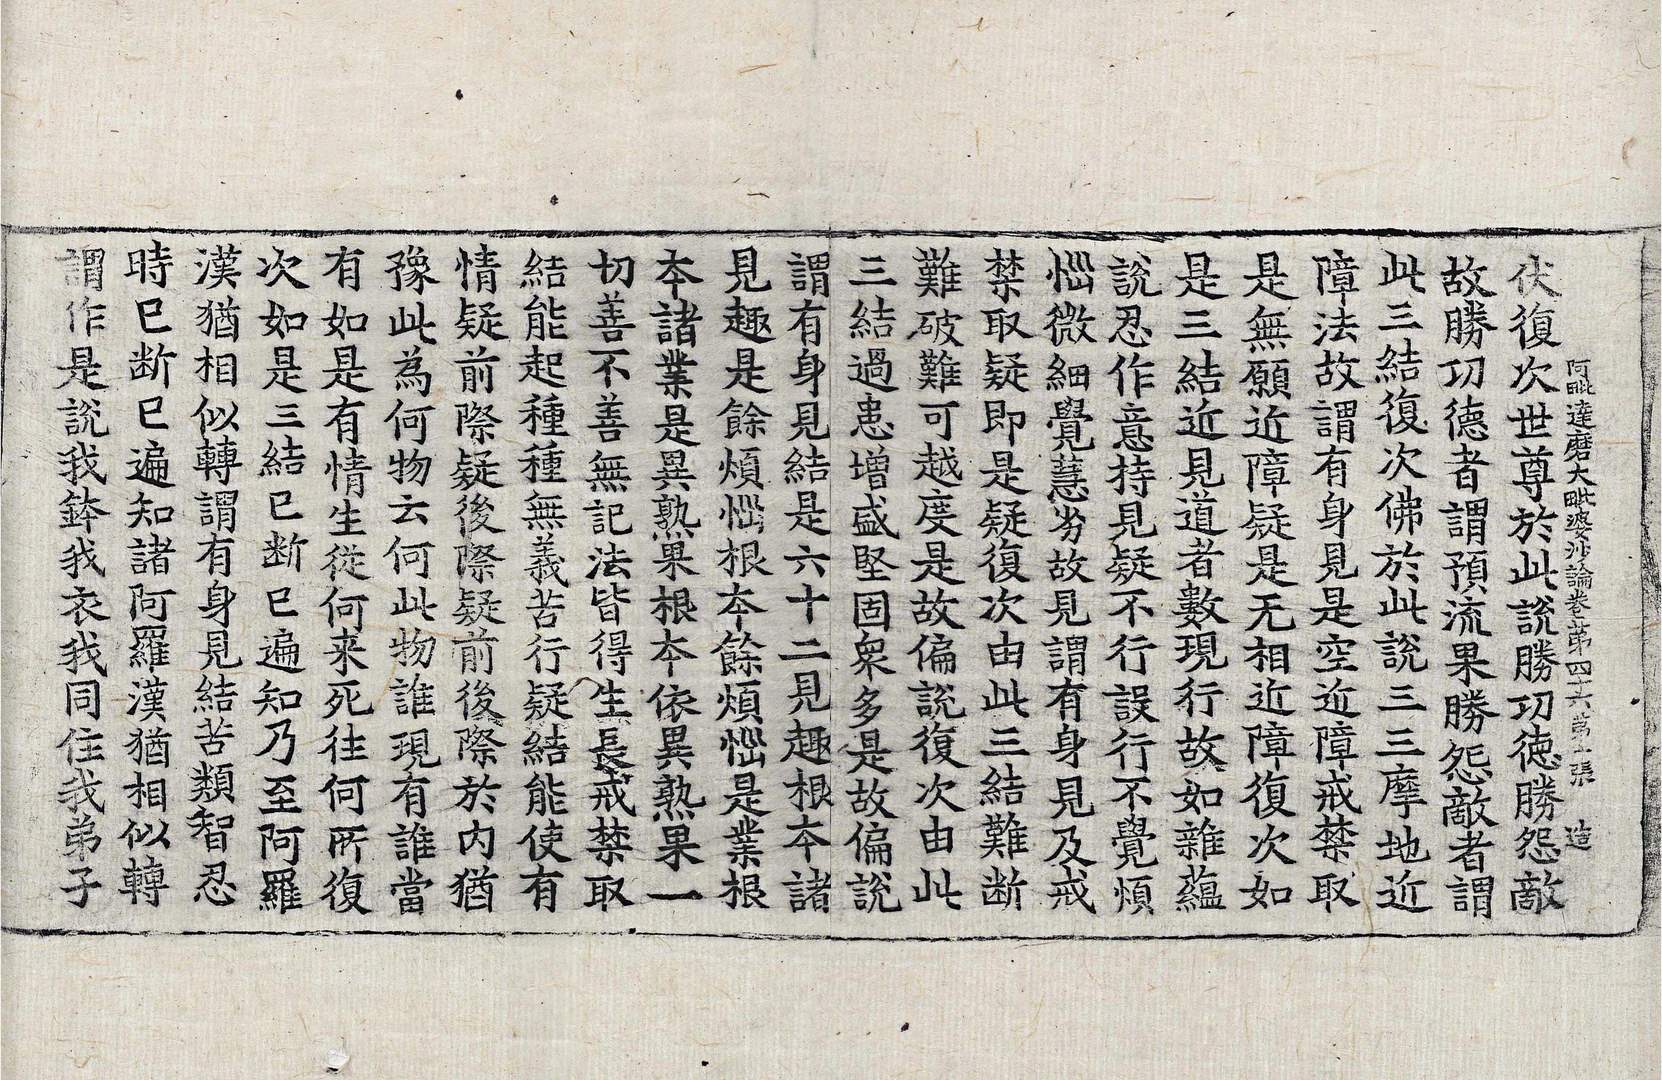 阿毗達磨大毗婆沙論卷第四十六 第二張 造
伏復次世尊於此說勝功德勝怨敵
故勝功德者謂預流果勝怨敵者謂
此三結復次佛於此說三三摩地近
障法故謂有身見是空近障戒禁取
是無願近障疑是无相近障復次如
是三結近見道者數現行故如雜蘊
說忍作意持見疑不行設行不覺煩
惱微細覺慧劣故見謂有身見及戒
禁取疑即是疑復次由此三結難断
難破難可越度是故偏說復次由此
三結過患增盛堅固衆多是故偏說
謂有身見結是六十二見趣根本諸
見趣是餘煩惱根本餘煩惱是業根
本諸業是異熟果根本依異熟果一
切善不善無記法皆得生長戒禁取
結能起種種無義苦行疑結能使有
情疑前際疑後際疑前後際於内猶
豫此為何物云何此物誰現有誰當
有如是有情生從何来死往何所復
次如是三結已断已遍知乃至阿羅
漢猶相似轉謂有身見結苦類智忍
時已断已遍知諸阿羅漢猶相似轉
謂作是說我鉢我衣我同住我弟子